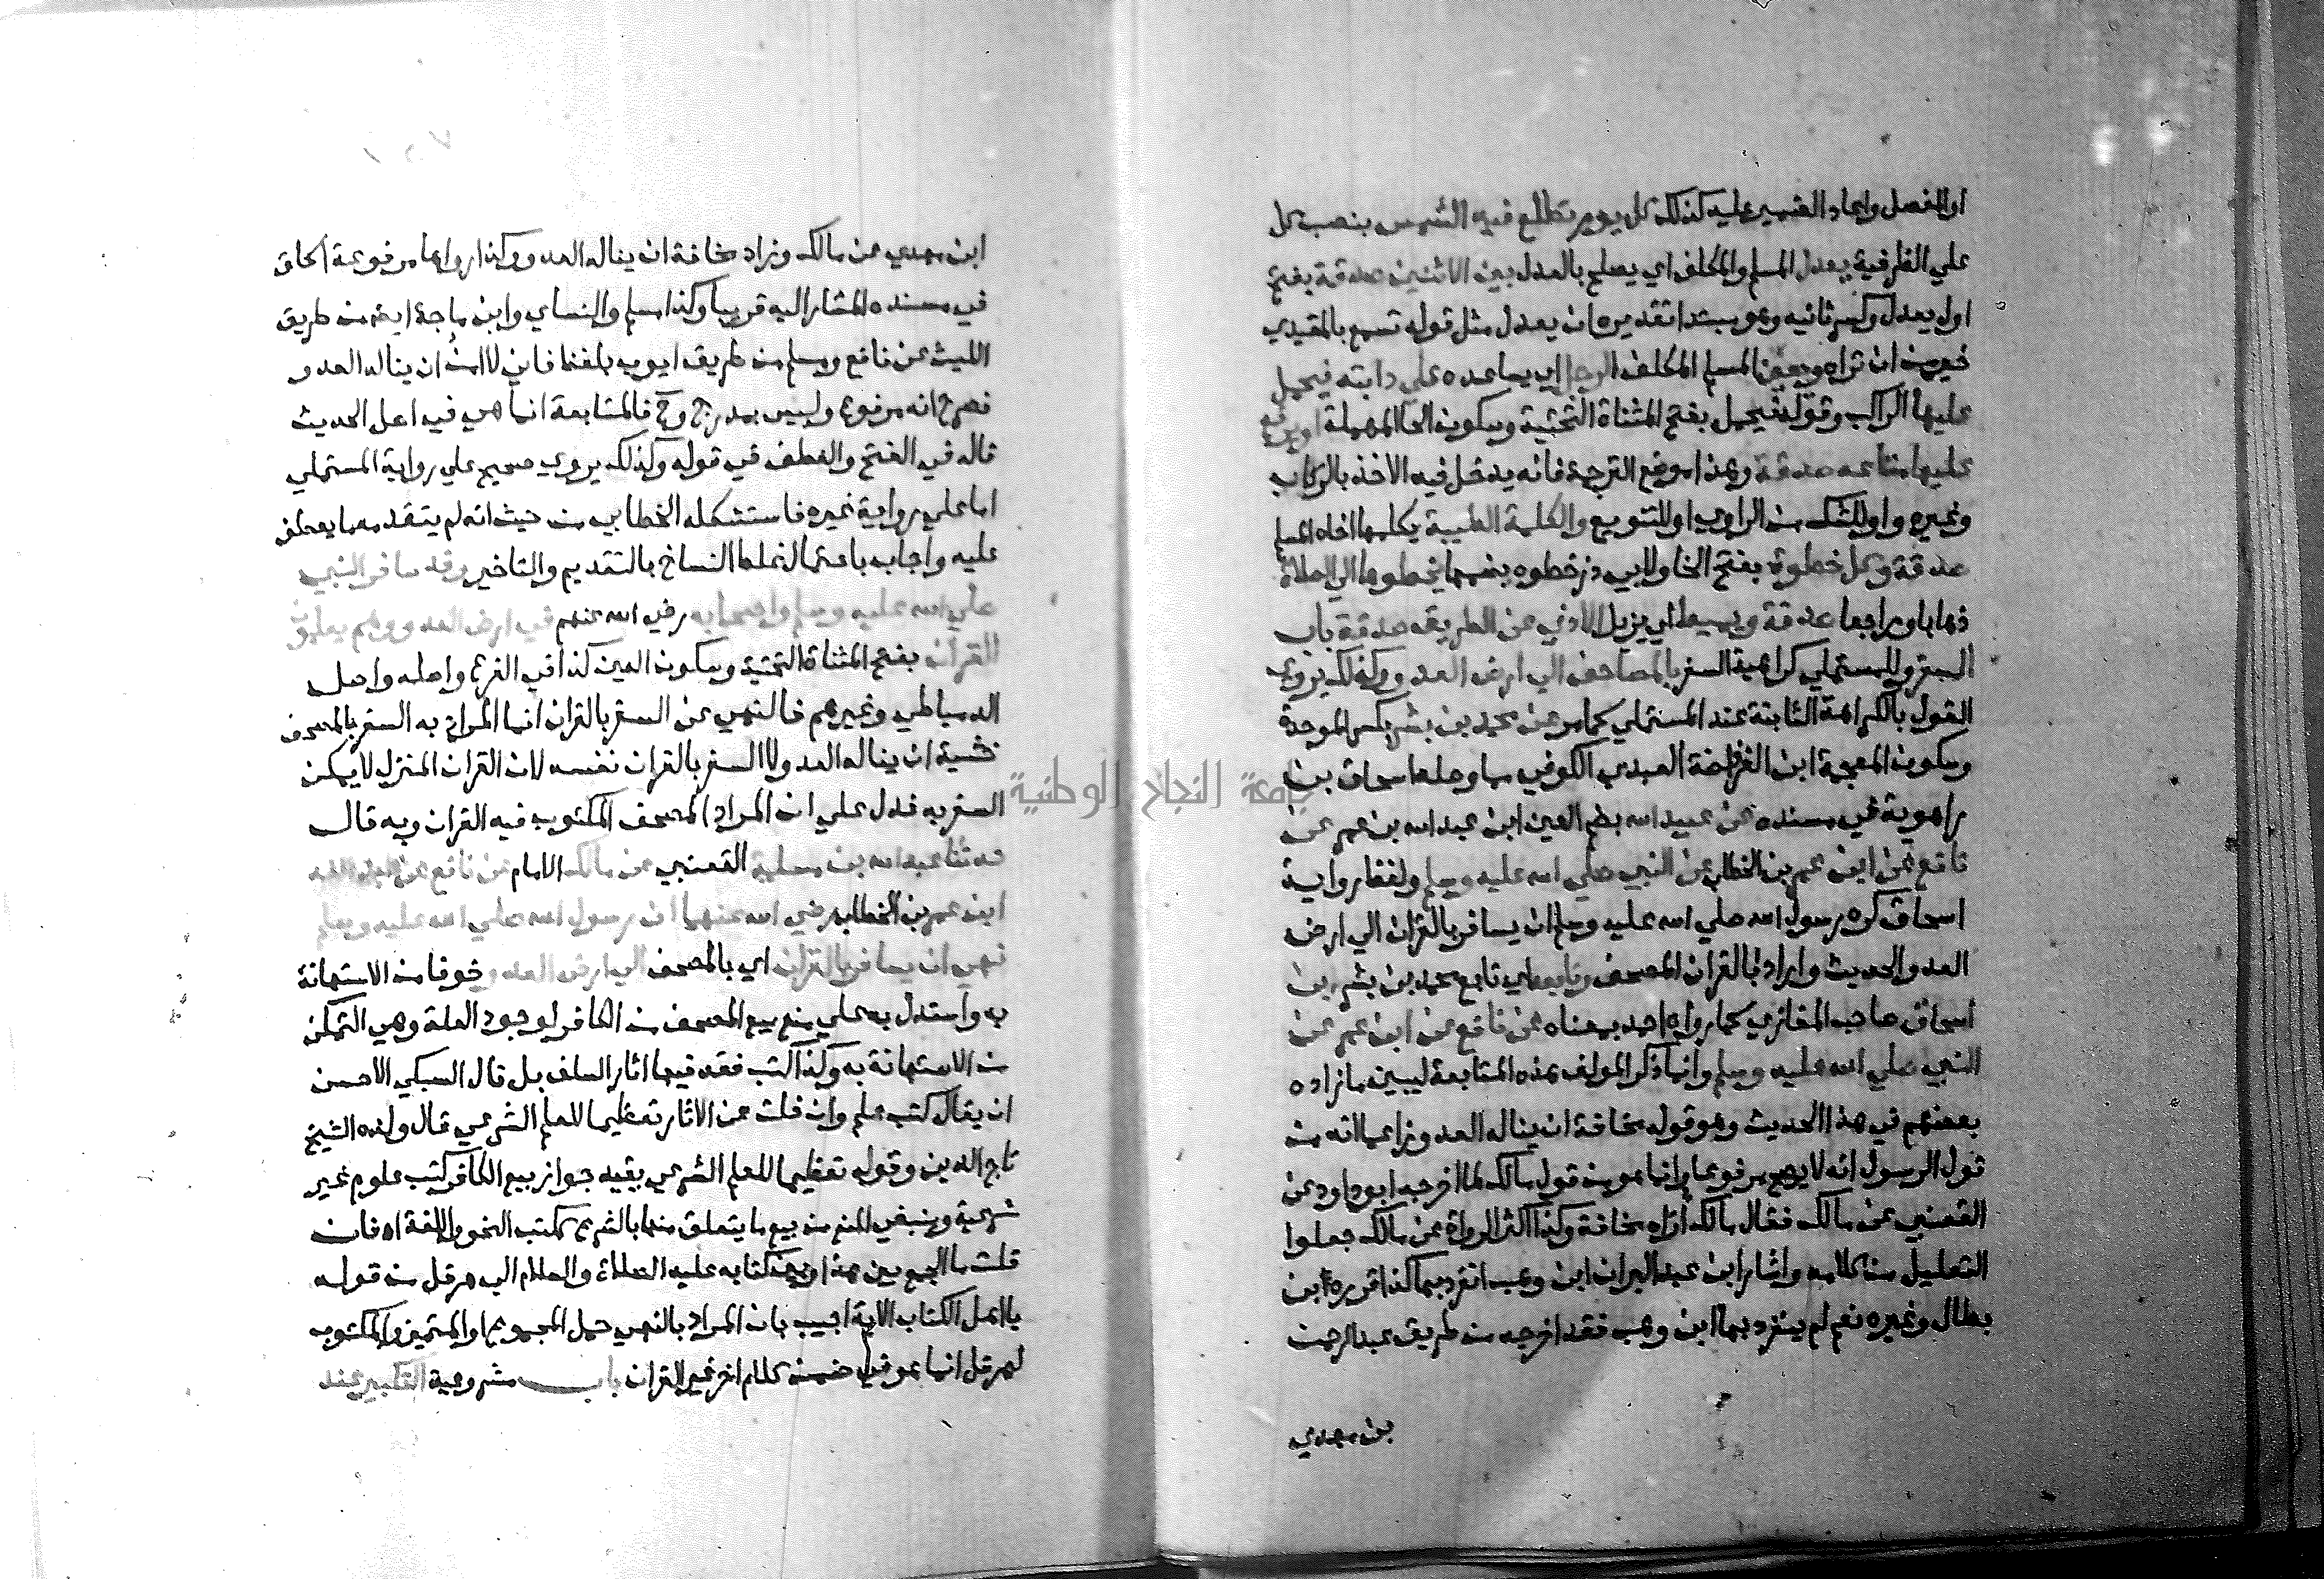 او المفصل واعاد الضمير عليه كذلك كل يوم تطلع فيه الشمس بنصب كل
علي الظرفية يعدل المسلم المكلف اي يصلح بالعدل بين الاثنين صدقة بفتح
اول يعدل وكسر ثانيه وهو مبتدا تقديره ان يعدل مثل قوله تسمع بالمعيدي
خير من ان تراه ويعين المسلم المكلف الرجل اي يساعده علي دابته فيحمل
عليها الراكب وقوله فيحمل بفتح المثناة التحتية وسكون الحا المهملة او يرفع
عليها متاعه صدقة وهذا موضع الترجمة فانه يدخل فيه الاخذ بالركاب
وغيره واو للشك من الراوي او للتنويع والكلمة الطيبة يكلمها اخاه المسلم
صدقة وكل خطوة بفتح الخا ولابي ذر خطوه بضمها يخطوها الي الصلاة
ذهابا وراجعا صدقة ويميط اي يزيل الاذي عن الطريق صدقة باب
السفر وللمستملي كراهية السفر بالمصاحف الي ارض العدو وكذلك يروي
القول بالكراهة الثابتة عند المستملي كما مر عن محمد بن بشر بكسر الموحدة
وسكون المعجمة ابن الفرافصة العبدي الكوفي مما وصله اسحاق بن
راهوية في مسنده عن عبيد الله بضم العين ابن عبد الله بن عمر عن
نافع عن ابن عمر بن الخطاب عن النبي صلي الله عليه وسلم ولفظ رواية
اسحاق كره رسول الله صلي الله عليه وسلم ان يسافر بالقران الي ارض
العدو الحديث واراد بالقران المصحف وتابعه اي تابع محمد بن بشر بن
اسحاق صاحب المغازي كما رواه احمد بمعناه عن نافع عن ابن عمر عن
النبي صلي الله عليه وسلم وانما ذكر المولف هذه المتابعة ليبين ما زاده
بعضهم في هذا الحديث وهو قوله مخافة ان يناله العدو زاعما انه من
قول الرسول انه لا يصح مرفوعا وانما هو من قول مالك لما اخرجه ابو داود عن
القعنبي عن مالك فقال مالك اراه مخافة وكذا اكثر الرواة عن مالك جعلوا
التعليل من كلامه واشار ابن عبد البر ان ابن وهب انفرد بها كذا قرره ابن
بطال وغيره نعم لم ينفرد بها ابن وهب فقد اخرجه من طريق عبد الرحمن
بن مهدي
ابن مهدي عن مالك وزاد مخافة ان يناله العدو وكذا رواها مرفوعة اسحاق
في مسنده المشار اليه قريبا وكذا مسلم والنساي وابن ماجة ايضا من طريق
الليث عن نافع ومسلم من طريق ايوب بلفظ فاني لا امن ان يناله العدو
فصرح انه مرفوع وليس بمدرج وح فالمتابعة انما هي في اصل الحديث
قاله في الفتح والعطف في قوله وكذلك يروي صحيح علي رواية المستملي
اما علي رواية غيره فاستشكله الخطابي من حيث انه لم يتقدمه ما يعطف
عليه واجاب باحتمال غلط النساخ بالتقديم والتاخير وقد سافر النبي
صلي الله عليه وسلم واصحابه رضي الله عنهم في ارض العدو وهم يعلمون
القران بفتح المثناة التحتية وسكون العين كذا في الفرع واصله واصل
الدمياطي وغيرهم فالنهي عن السفر بالقران انما المراد به السفر بالمصحف
خشية ان يناله العدو لا السفر بالقران نفسه لان القران المنزل لا يمكن
السفر به فدل علي ان المراد المصحف المكتوب فيه القران وبه قال
حدثنا عبد الله بن مسلمة القعنبي عن مالك الامام عن نافع عن عبد الله
ابن عمر بن الخطاب رضي الله عنهما ان رسول الله صلي الله عليه وسلم
نهي ان يسافر بالقران اي بالمصحف الي ارض العدو خوفا من الاستهانة
به واستدل به علي منع بيع المصحف من الكافر لوجود العلة وهي التمكن
من الاستهانة به وكذا كتب فقه فيها اثار السلف بل قال السبكي الاحسن
ان يقال كتب علم وان خلت عن الاثار تعظيما للعلم الشرعي قال ولده الشيخ
تاج الدين وقوله تعظيما للعلم الشرعي يفيد جواز بيع الكافر كتب علوم غير
شرعية وينبغي المنع من بيع ما يتعلق منها بالشرع ككتب النحو واللغة اه فان
قلت ما الجمع بين هذا وبين كتابه عليه الصلاة والسلام الي هرقل من قوله
يا اهل الكتاب الاية اجيب بان المراد بالنهي حمل المجموع او المتميز والمكتوب
لهرقل انما هو في ضمن كلام اخر غير القران باب مشروعية التكبير عند
جامعة النجاح الوطنية